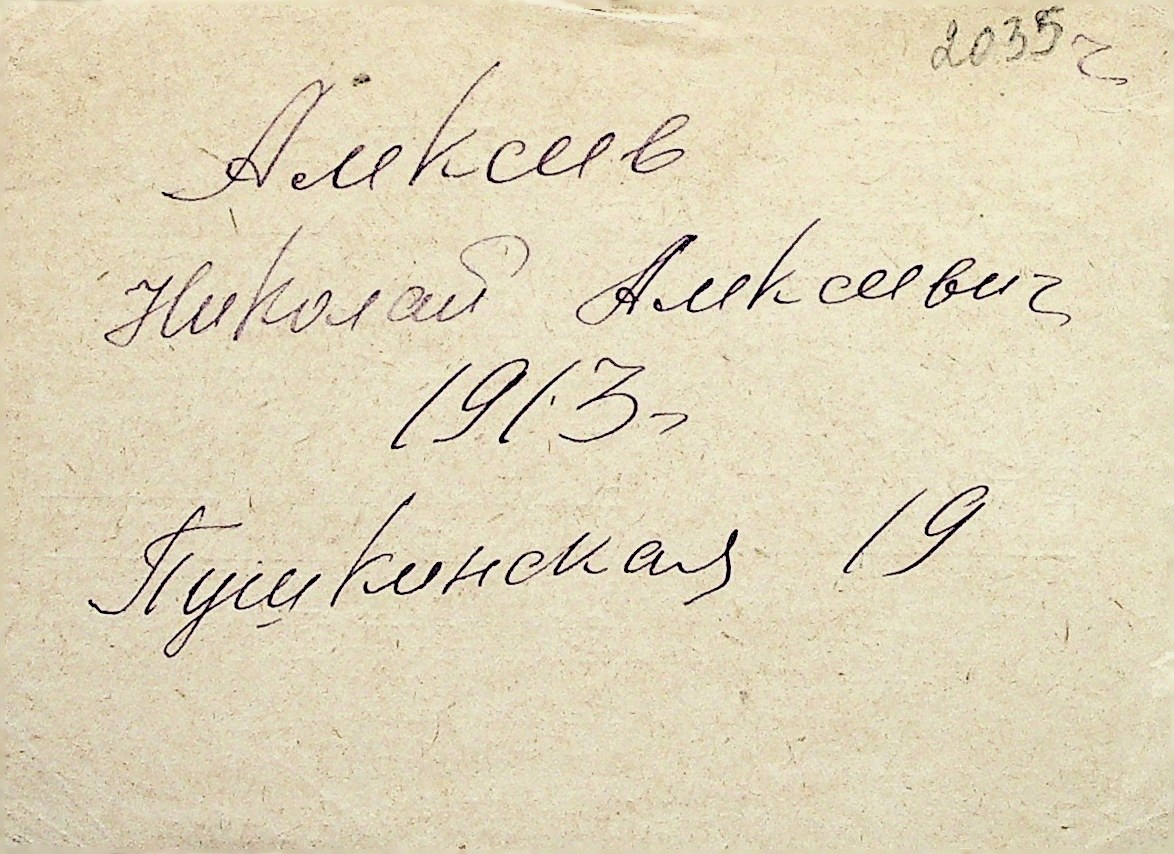 2035 г
Алексеев
Николай Алексеевич
1913 г
Пушкинская 19